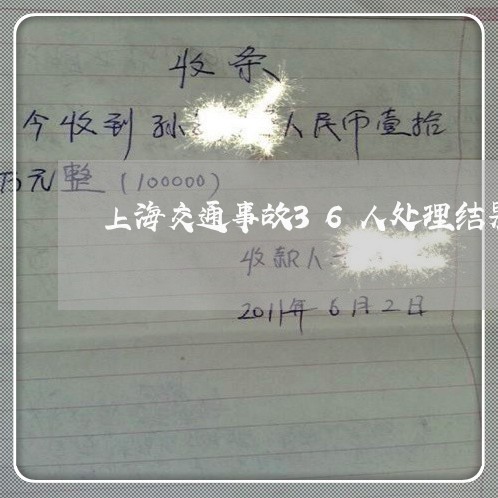 收条
今收到孙 人民币壹拾
万元整（100000）
上海交通事故36人处理结果
收款人
2011年6月2日